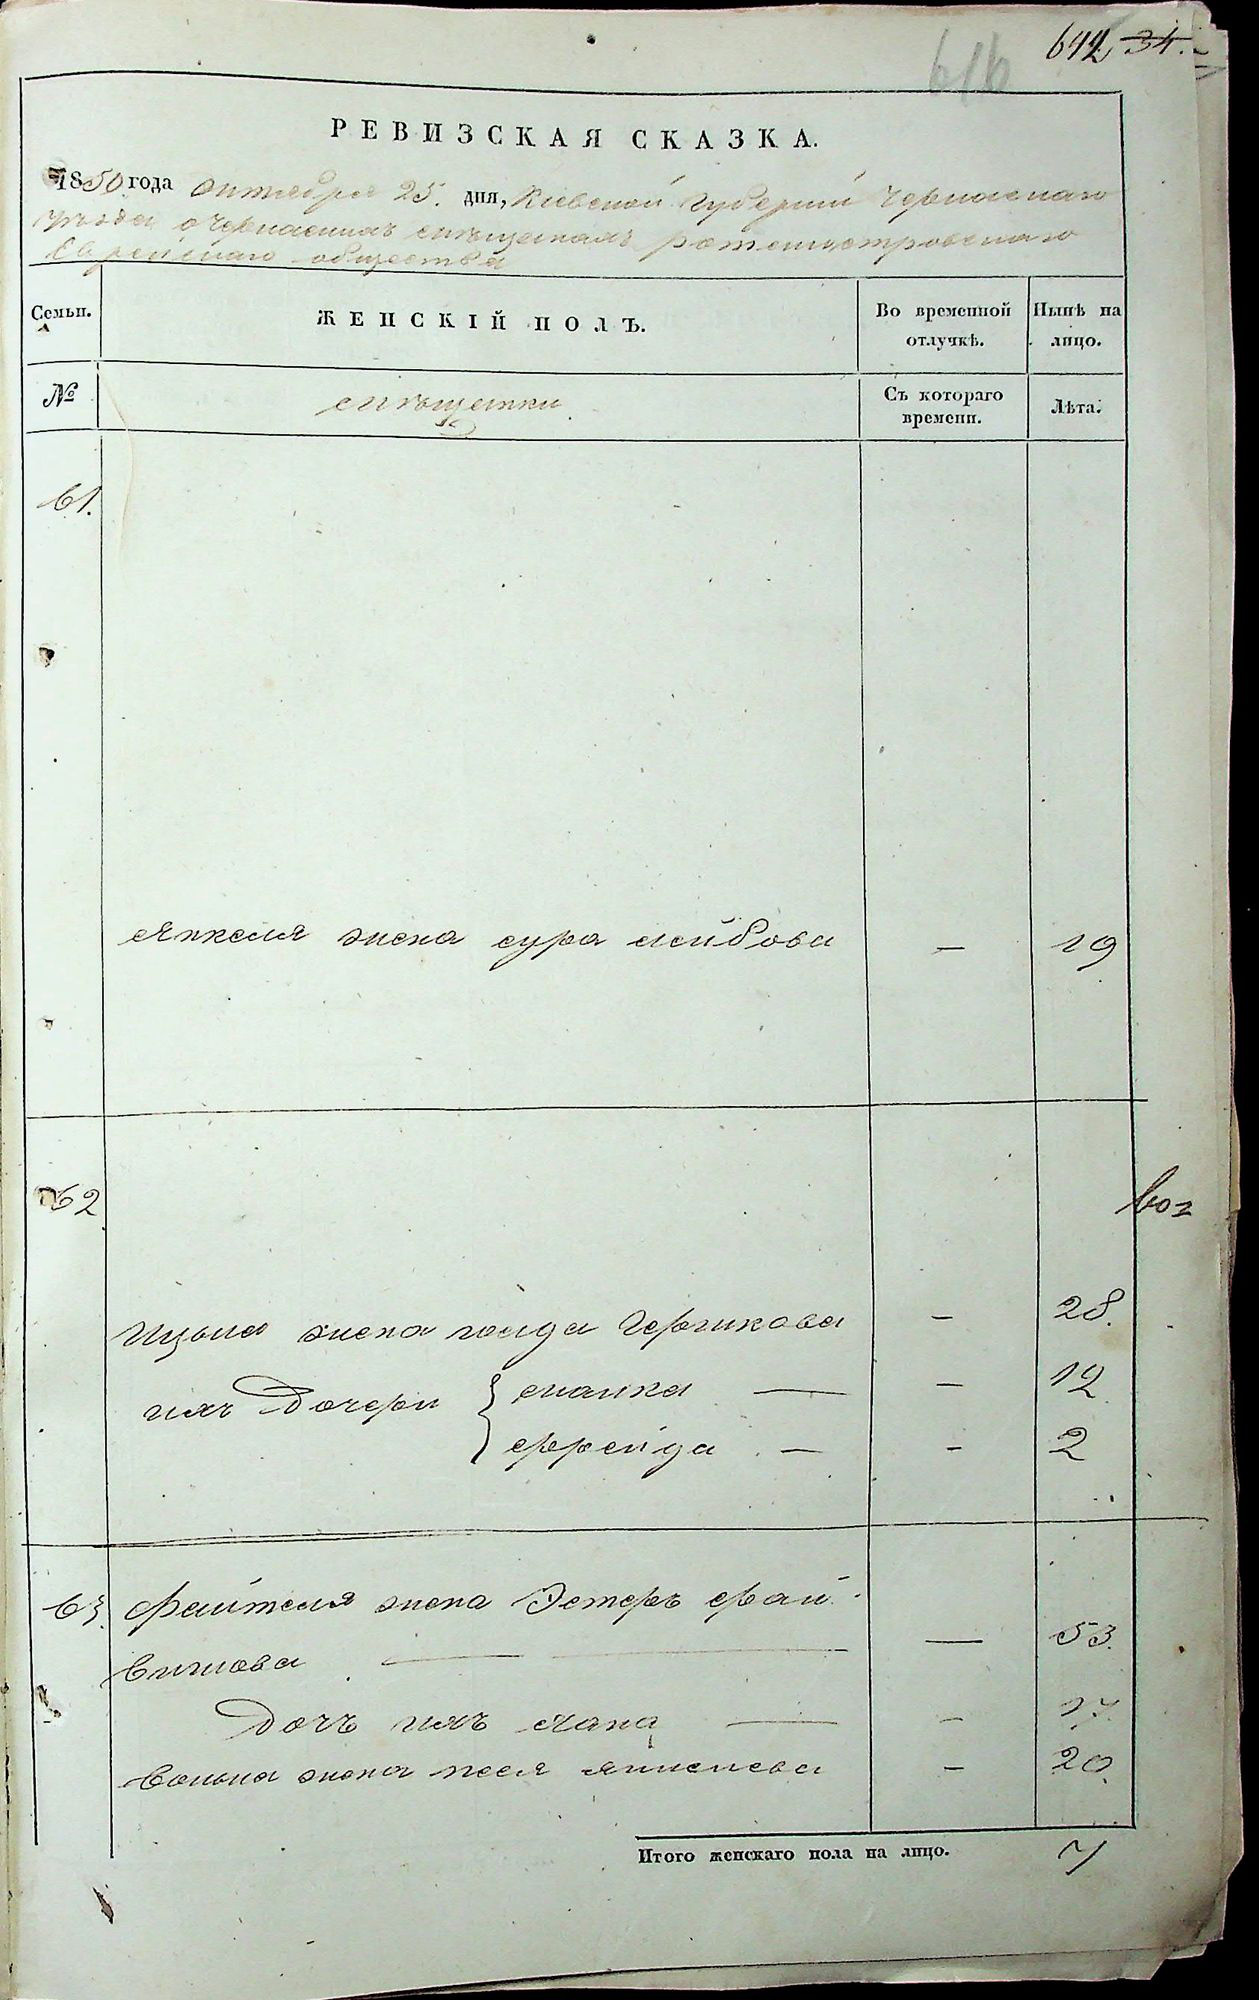 642 34.
616
РЕВИЗСКАЯ СКАЗКА.
1850 года октября 25. дня, Киевской Губернии Черкаскаго
уезда о черкаских мещанкахъ ротмистровскаго
Еврейскаго общества
Семьи. ЖЕНСКІЙ ПОЛЪ. Во временной отлучкѣ. Нынѣ на лицо.
№ мещанки Съ котораго времени. Лѣта.
61.
Янкеля жена сура лейбова — 19
62 воз
Ицька жена голда Гершкова — 28.
ихъ дочери { малка — — 12
фрейда — — 2
63. Файтеля жена Эстеръ фай-
вишова — — 53.
дочь ихъ хана — — 17.
Волька жена песя — 20.
Итого женскаго пола на лицо. 7